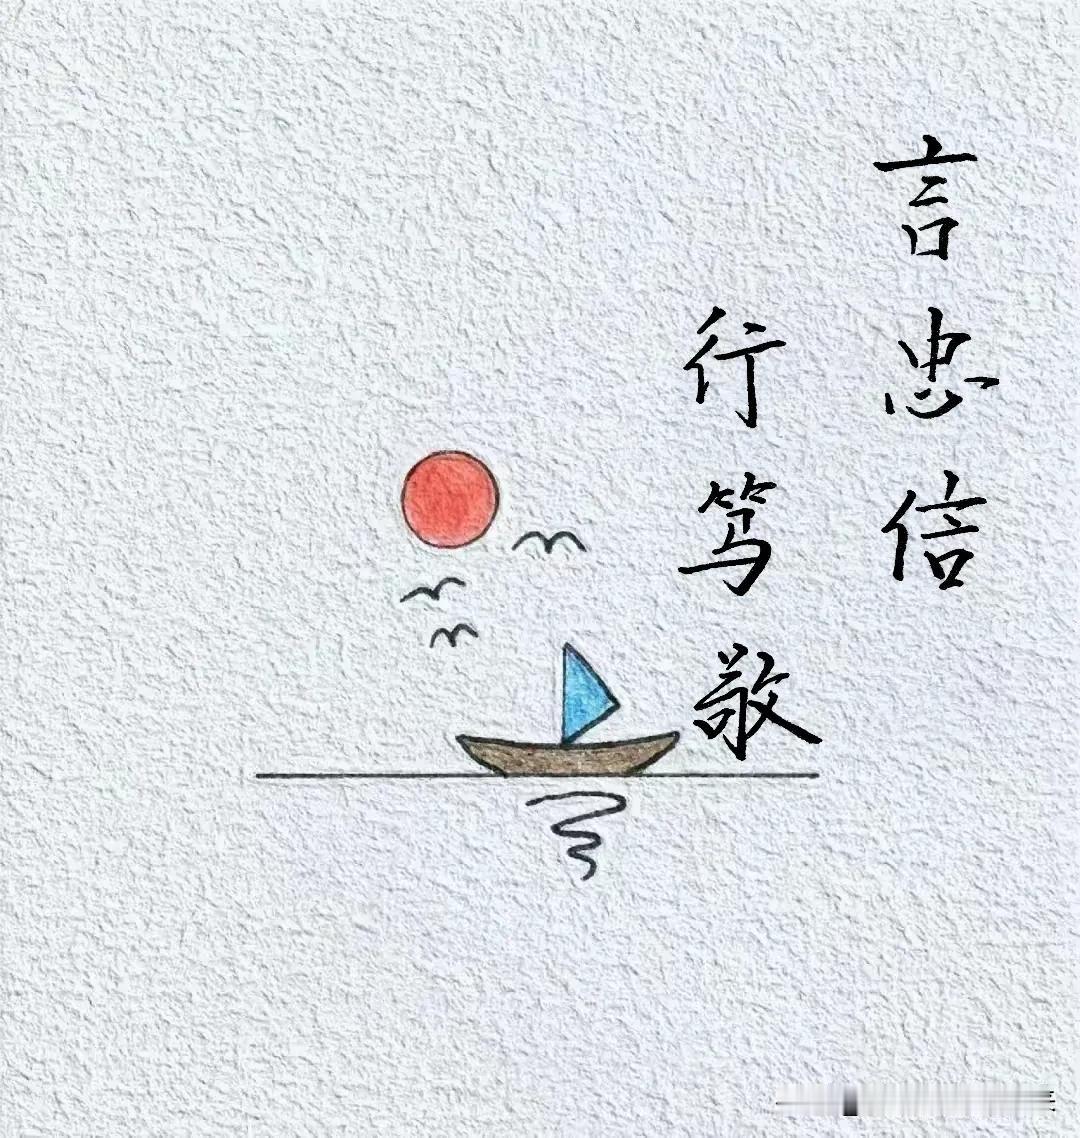 言忠信
行笃敬